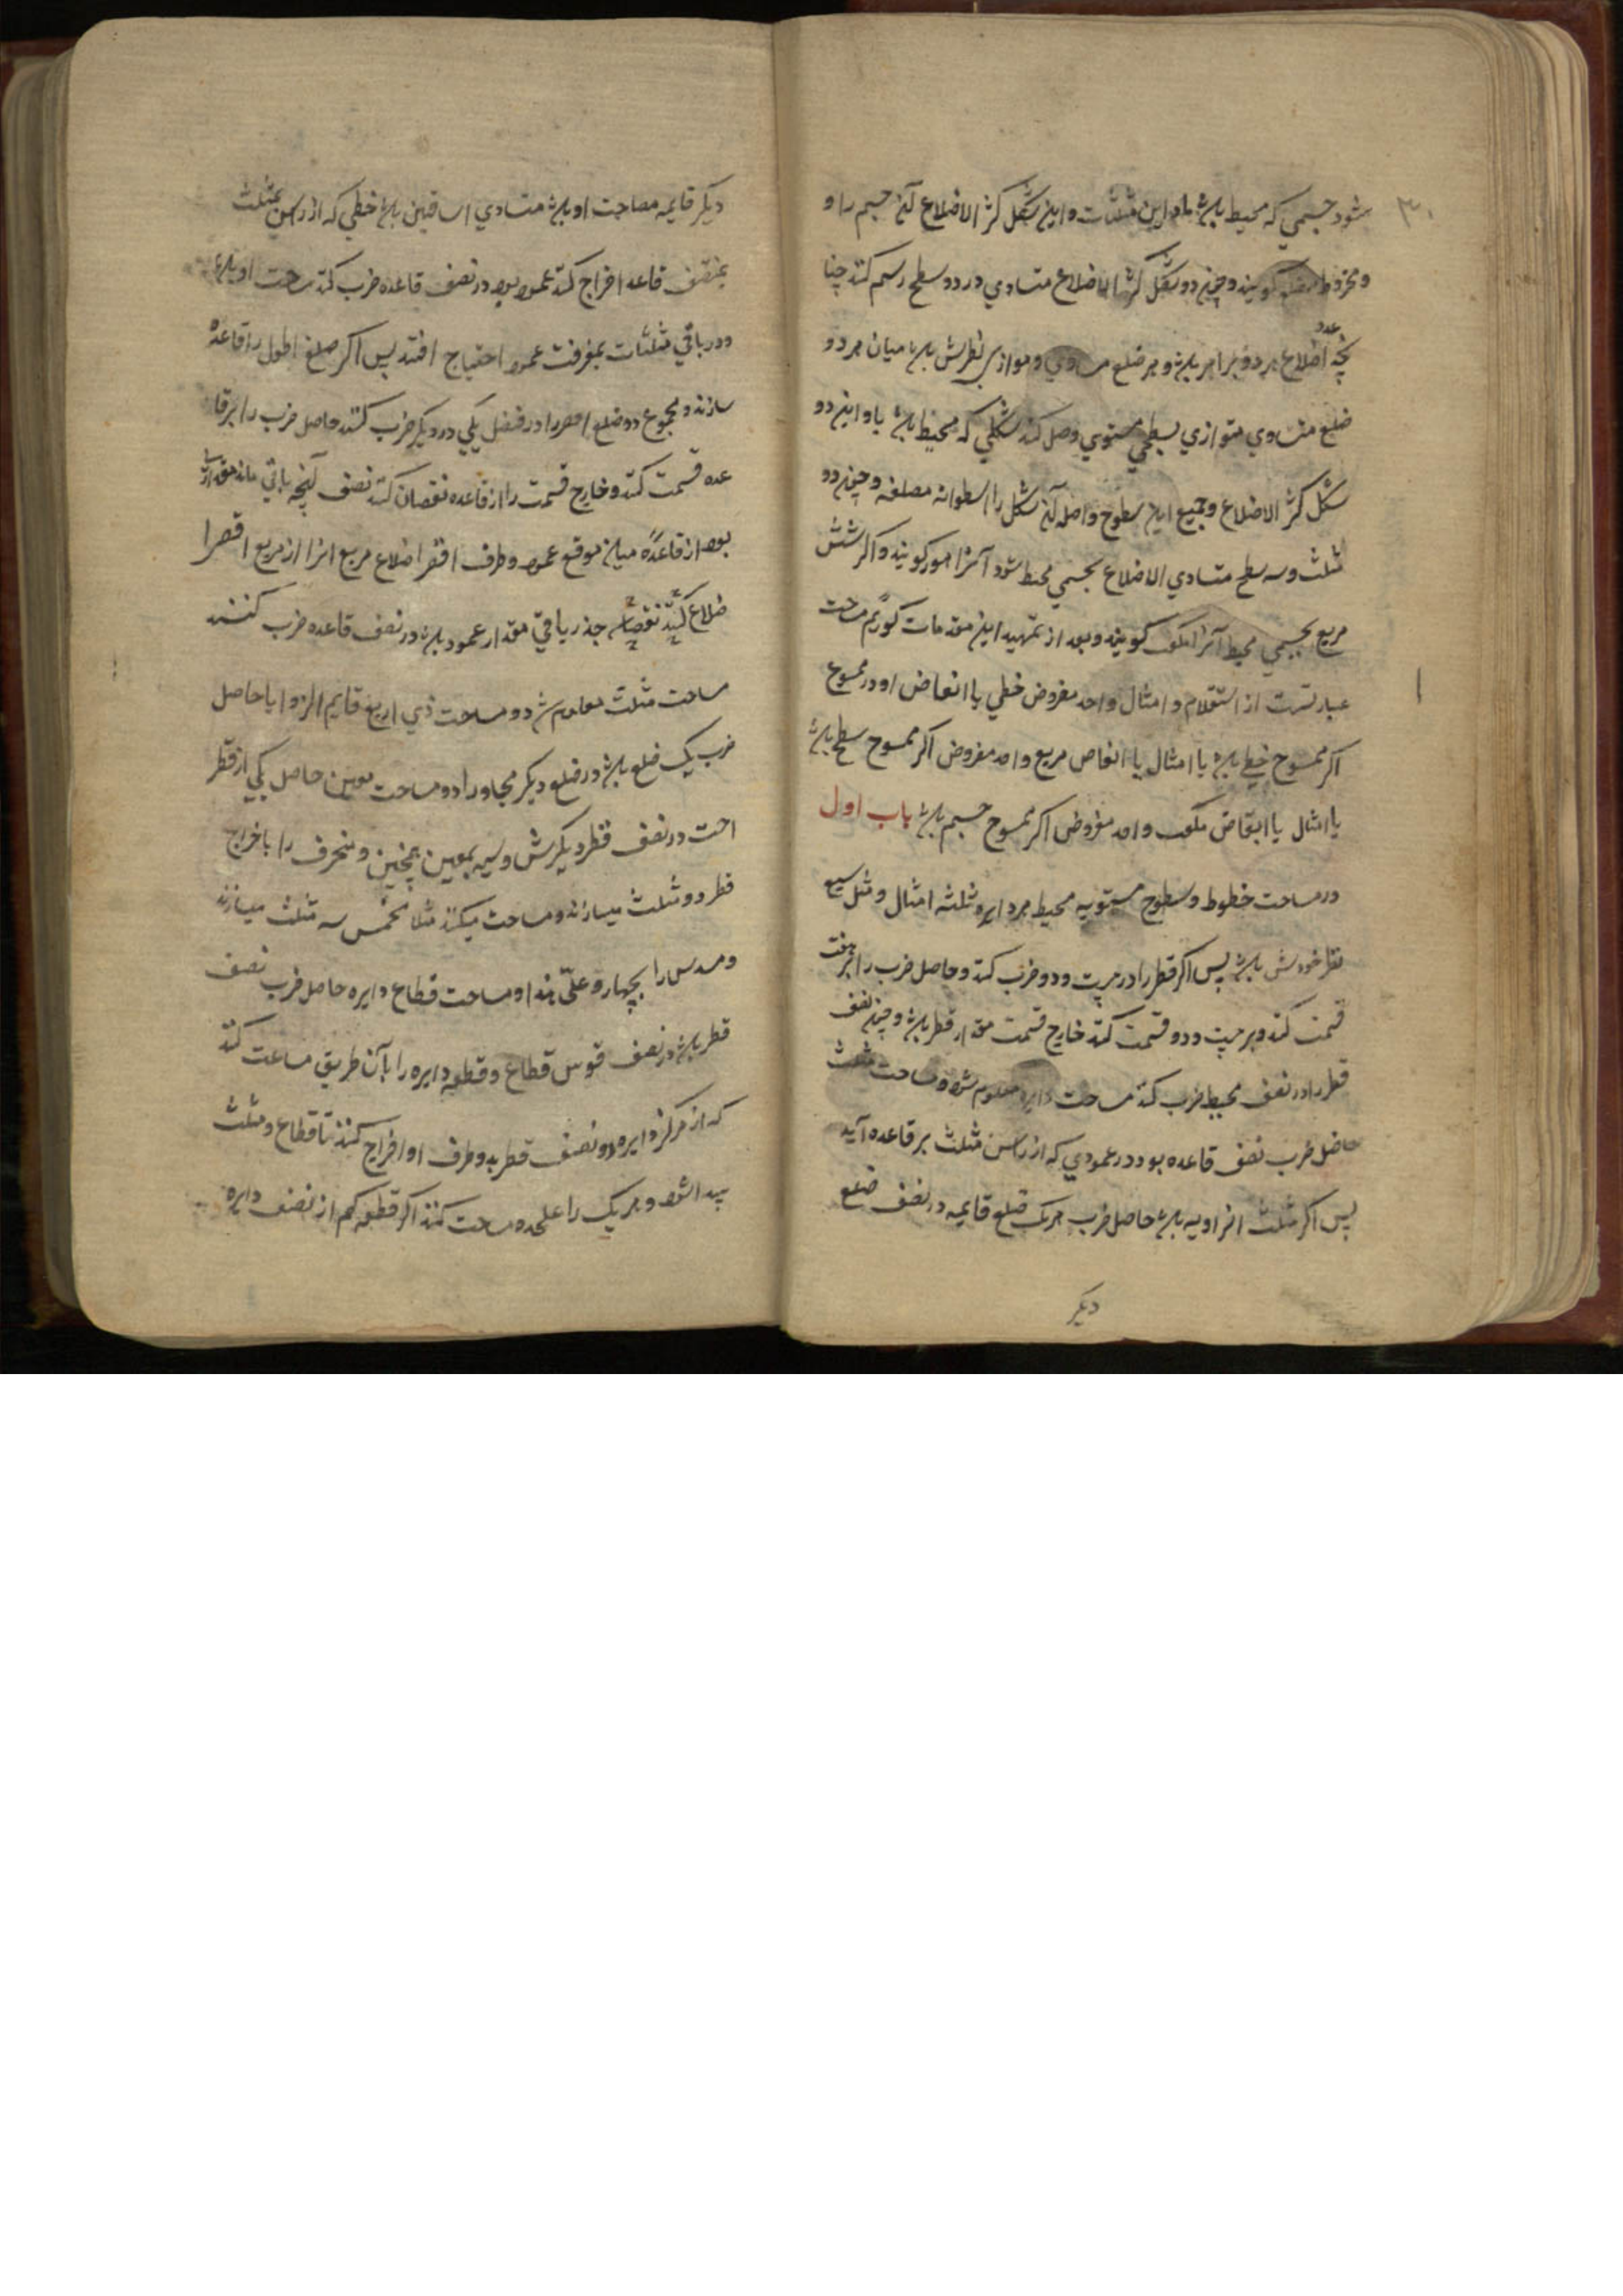 ۳۰
شود جسمي که محیط باشد باو این مثلثات و این شکل کثر الاضلاع آن جسم را و
مخروط مضلع کویند و چون دو شکل کثر الاضلاع متساوي در دو سطح رسم کنند چنا
نچه عدد اضلاع هر دو برابر باشد و هر ضلع مساوي و موازي نظرش باشد میان هر دو
ضلع متساوي متوازي بسطحي مستوي وصل کنند شکلي که محیط باشد باو این دو
شکل کثر الاضلاع و جمیع این سطوح واصله آن شکل را اسطوانه مضلعه و چون دو
مثلث و سه سطح متساوي الاضلاع بجسمي محیط شود آنرا کویند و اکر شش
مربع بجسمي محیط آنرا مکعب کویند و بعد از تمهید این مقدمات کوئیم مساحت
عبارتست از استعلام و امثال واحد مفروض خطي یا ابعاض او در ممسوح
اکر ممسوح خط باشد یا امثال یا ابعاض مربع واحد مفروض اکر ممسوح سطح باشد
یا امثال یا ابعاض مکعب واحد مفروض اکر ممسوح جسم باشد باب اول
در مساحت خطوط و سطوح مستویه محیط هر دایره ثلثه امثال و مثل سبع
قطر خودش باشد پس اکر قطر را در بیست و دو ضرب کنند و حاصل ضرب را بر هفت
قسمت کنند و بر بیست و دو قسمت کنند خارج قسمت مقدار قطر باشد و چون نصف
قطر را در نصف محیط ضرب کنند مساحت دایره معلوم شود و مساحت مثلث
حاصل ضرب نصف قاعده بود در عمودي که از راس مثلث بر قاعده آید
پس اکر مثلث زاویه باشد حاصل ضرب هر یک ضلع قایمه در نصف ضلع
دیکر
دیکر قایمه مساحت او باشد متساوي الساقین باشد خطي که از راس مثلث
بمنصف قاعده اخراج کنند عمود بود در نصف قاعده ضرب کنند مساحت او باشد
و در باقي مثلثات بمعرفت عمود احتیاج افتد پس اکر ضلع اطول را قاعده
سازند و مجموع دو ضلع اقصر را در فضل یکي در دیکر ضرب کنند حاصل ضرب را بر قا
عده قسمت کنند و خارج قسمت را از قاعده نقصان کنند نصف آنچه باقي ماند مقدار
بود از قاعده میان موقع عمود و طرف اقصر اضلاع مربع انرا از مربع اقصر ا
ضلاع کنند نقصان جذر باقي مقدار عمود باشد در نصف قاعده ضرب کنند
مساحت مثلث معلوم شود و مساحت ذي اربع قایم الزوایا حاصل
ضرب یک ضلع باشد در ضلع دیکر مجاور او و مساحت معین حاصل یکي از قطر
احت در نصف قطر دیکرش و شبیه بمعین همچنین و منحرف را باخراج
قطر دو مثلث میسازند و مساحت میکنند مثلا مخمس سه مثلث میسازند
و مسدس را بچهار و علی هذا و مساحت قطاع دایره حاصل ضرب نصف
قطر باشد در نصف قوس قطاع و قطعه دایره را بآن طریق مساحت کنند
که از مرکز دایره دو نصف قطر بدو طرف او اخراج کنند تا قطاع و مثلث
پیدا شود و هر یک را علحده مساحت کنند اکر قطعه کم از نصف دایره